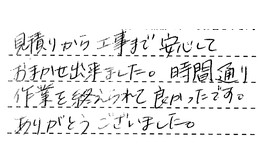 見積りから工事まで安心して
おまかせ出来ました。時間通り
作業を終えられて良かったです。
ありがとうございました。